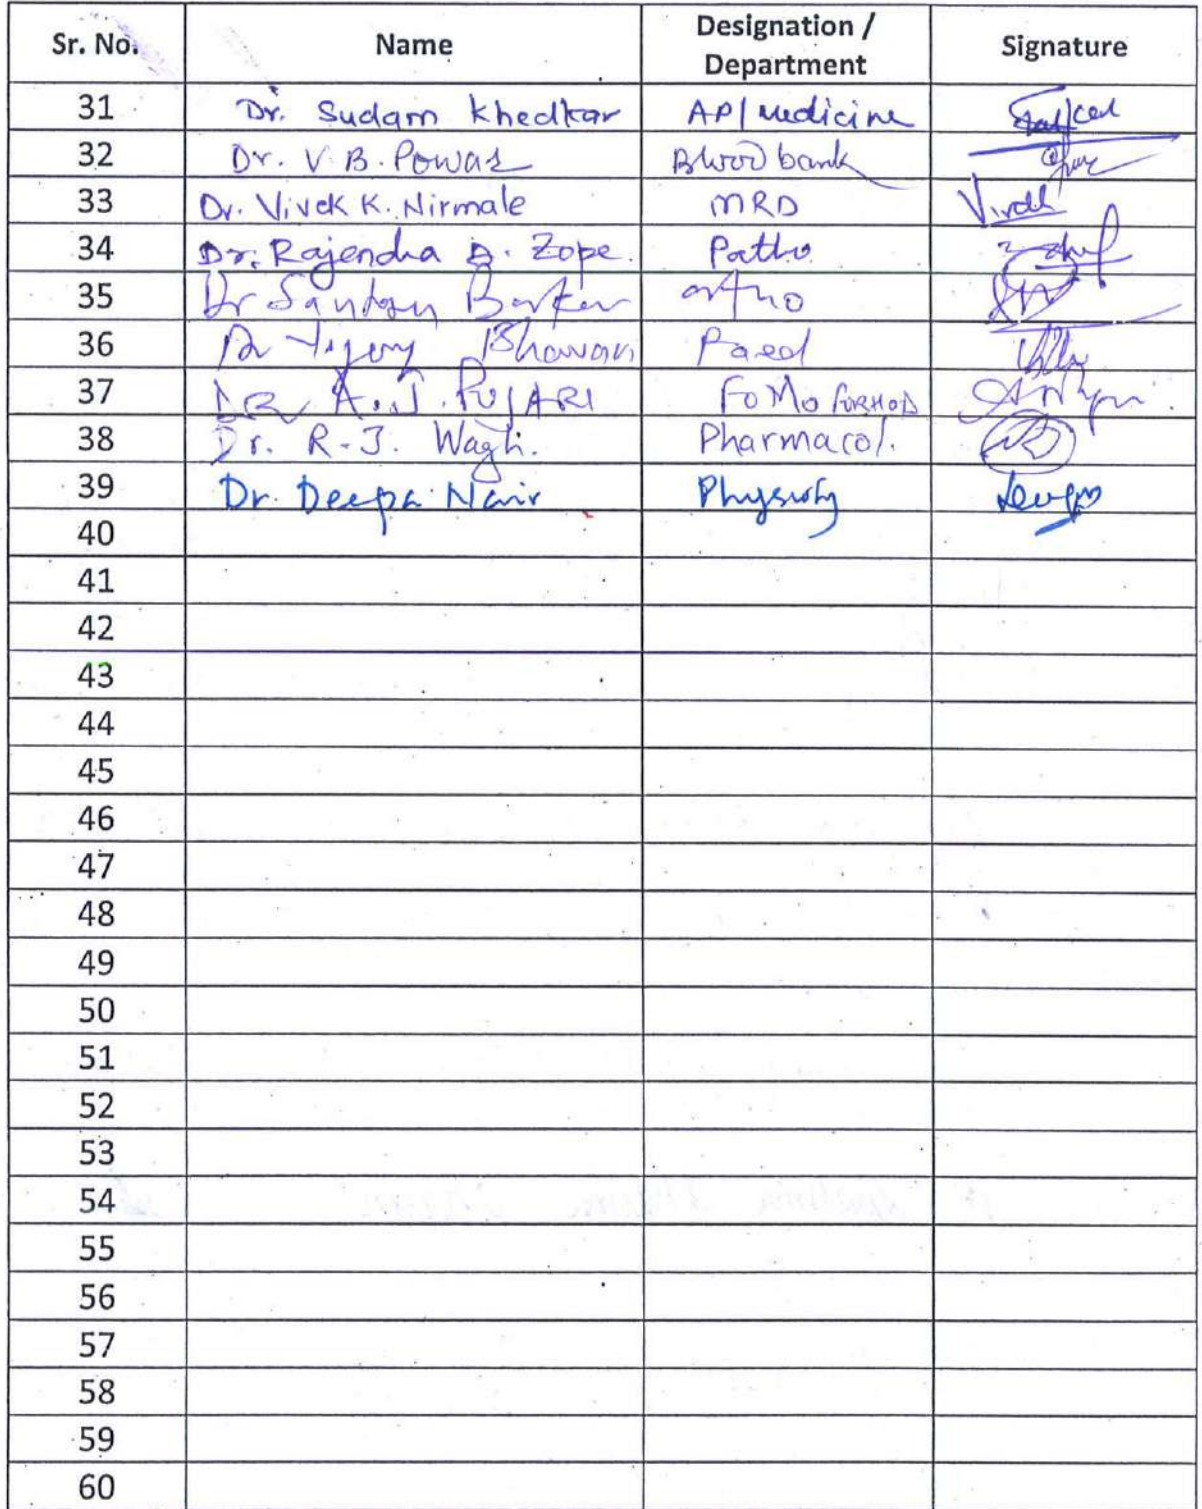 Sr. No. Name Designation / Department Signature
31 Dr. Sudam Khedkar AP/Medicine
32 Dr. V. B. Powar Blood bank
33 Dr. Vivek K. Nirmale MRD Vivek
34 Dr. Rajendra D. Zope Patho
35 Dr Santosh Borkar ortho
36 Dr Bhavari Paed
37 DR A. J. PUJARI
38 Dr. R. J. Wagh. Pharmacol.
39 Dr. Deepa Nair Physiology Deepa
40
41
42
43
44
45
46
47
48
49
50
51
52
53
54
55
56
57
58
59
60